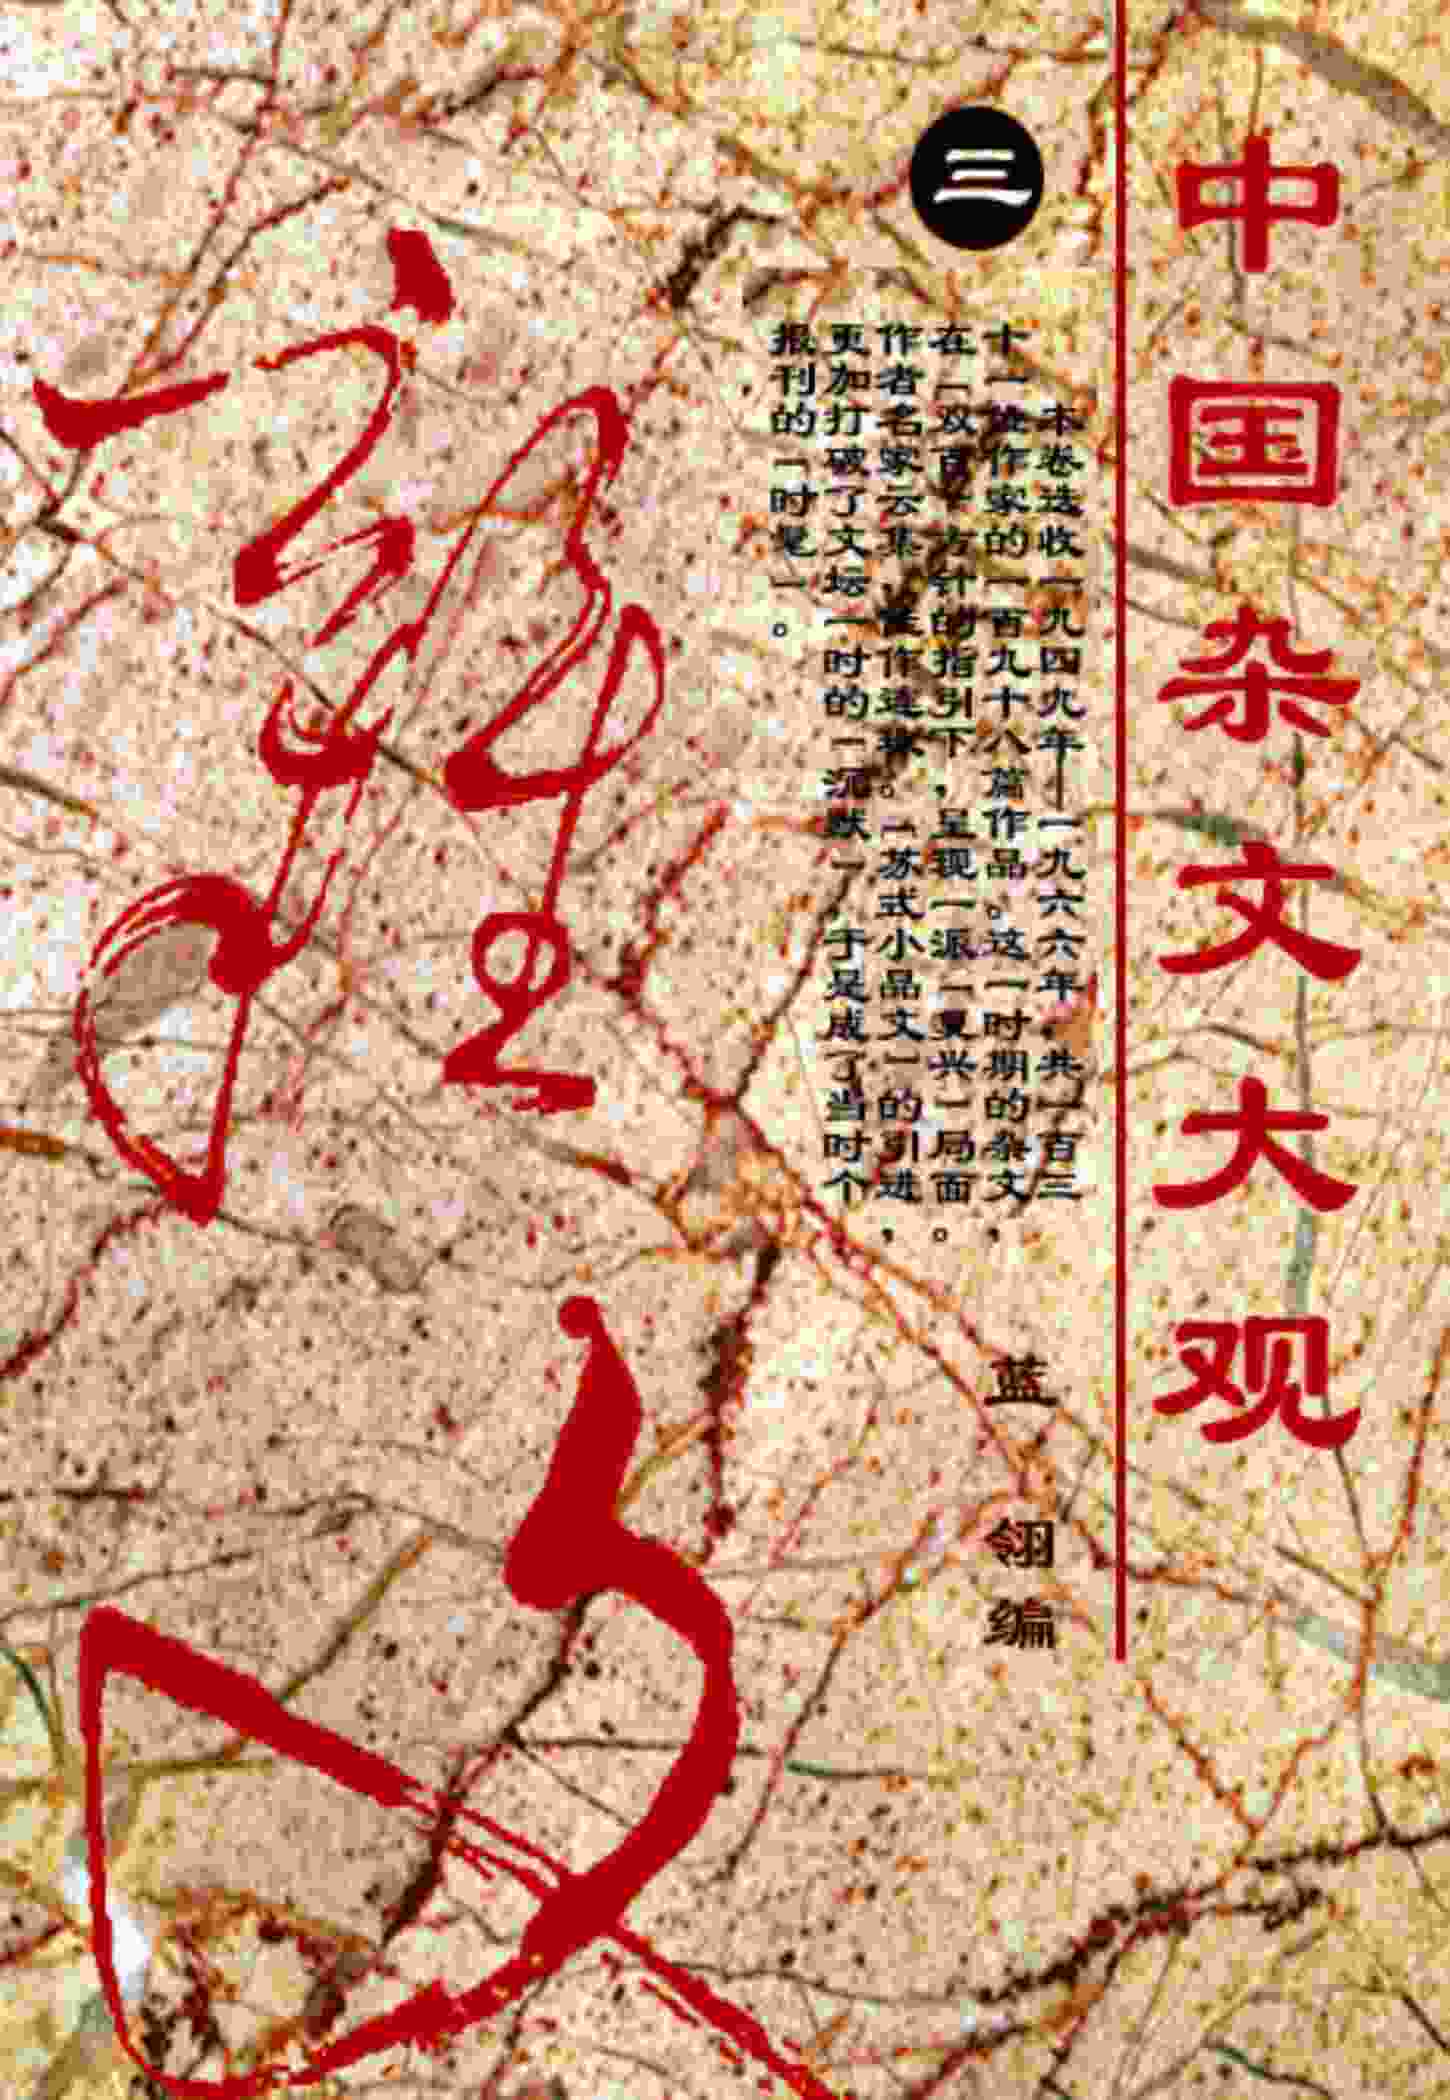 中国杂文大观
三
本卷选收一九四九年—一九六六年，共一百三
十一位作家的一百九十八篇作品。这一时期的杂文，
在「双百」方针的指引下，呈现一派「复兴」局面。
作者名家云集，佳作连珠。「苏式小品文」的引进，
更加打破了文坛一时的「沉默」，于是成了当时个
报刊的「时髦」。
蓝翎编